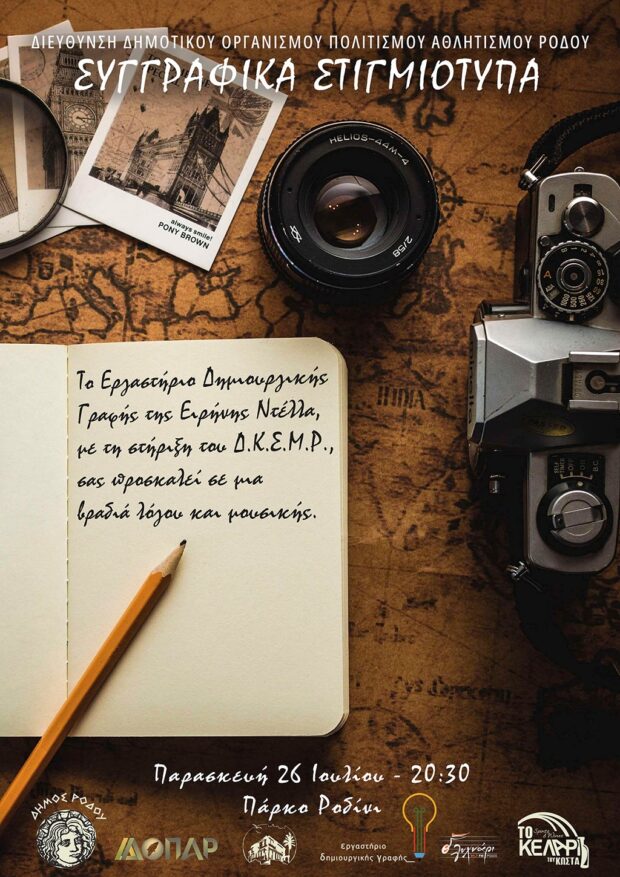 ΔΙΕΥΘΥΝΣΗ ΔΗΜΟΤΙΚΟΥ ΟΡΓΑΝΙΣΜΟΥ ΠΟΛΙΤΙΣΜΟΥ ΑΘΛΗΤΙΣΜΟΥ ΡΟΔΟΥ
ΣΥΓΓΡΑΦΙΚΑ ΣΤΙΓΜΙΟΤΥΠΑ
always smile!
PONY BROWN
HELIOS-44M-4
2/58
Το Εργαστήριο Δημιουργικής
Γραφής της Ειρήνης Ντέλλα,
με τη στήριξη του Δ.Κ.Ε.Μ.Ρ.,
σας προσκαλεί σε μια
βραδιά λόγου και μουσικής.
INDIA
SELF
TIMER
OFF
ON
B.C.
Παρασκευή 26 Ιουλίου - 20:30
Πάρκο Ροδίνι
ΔΗΜΟΣ ΡΟΔΟΥ
ΔΟΠΑΡ
Εργαστήριο
δημιουργικής γραφής
ΤΟ
ΚΕΛΑΡΙ
ΤΟΥ ΚΩΣΤΑ